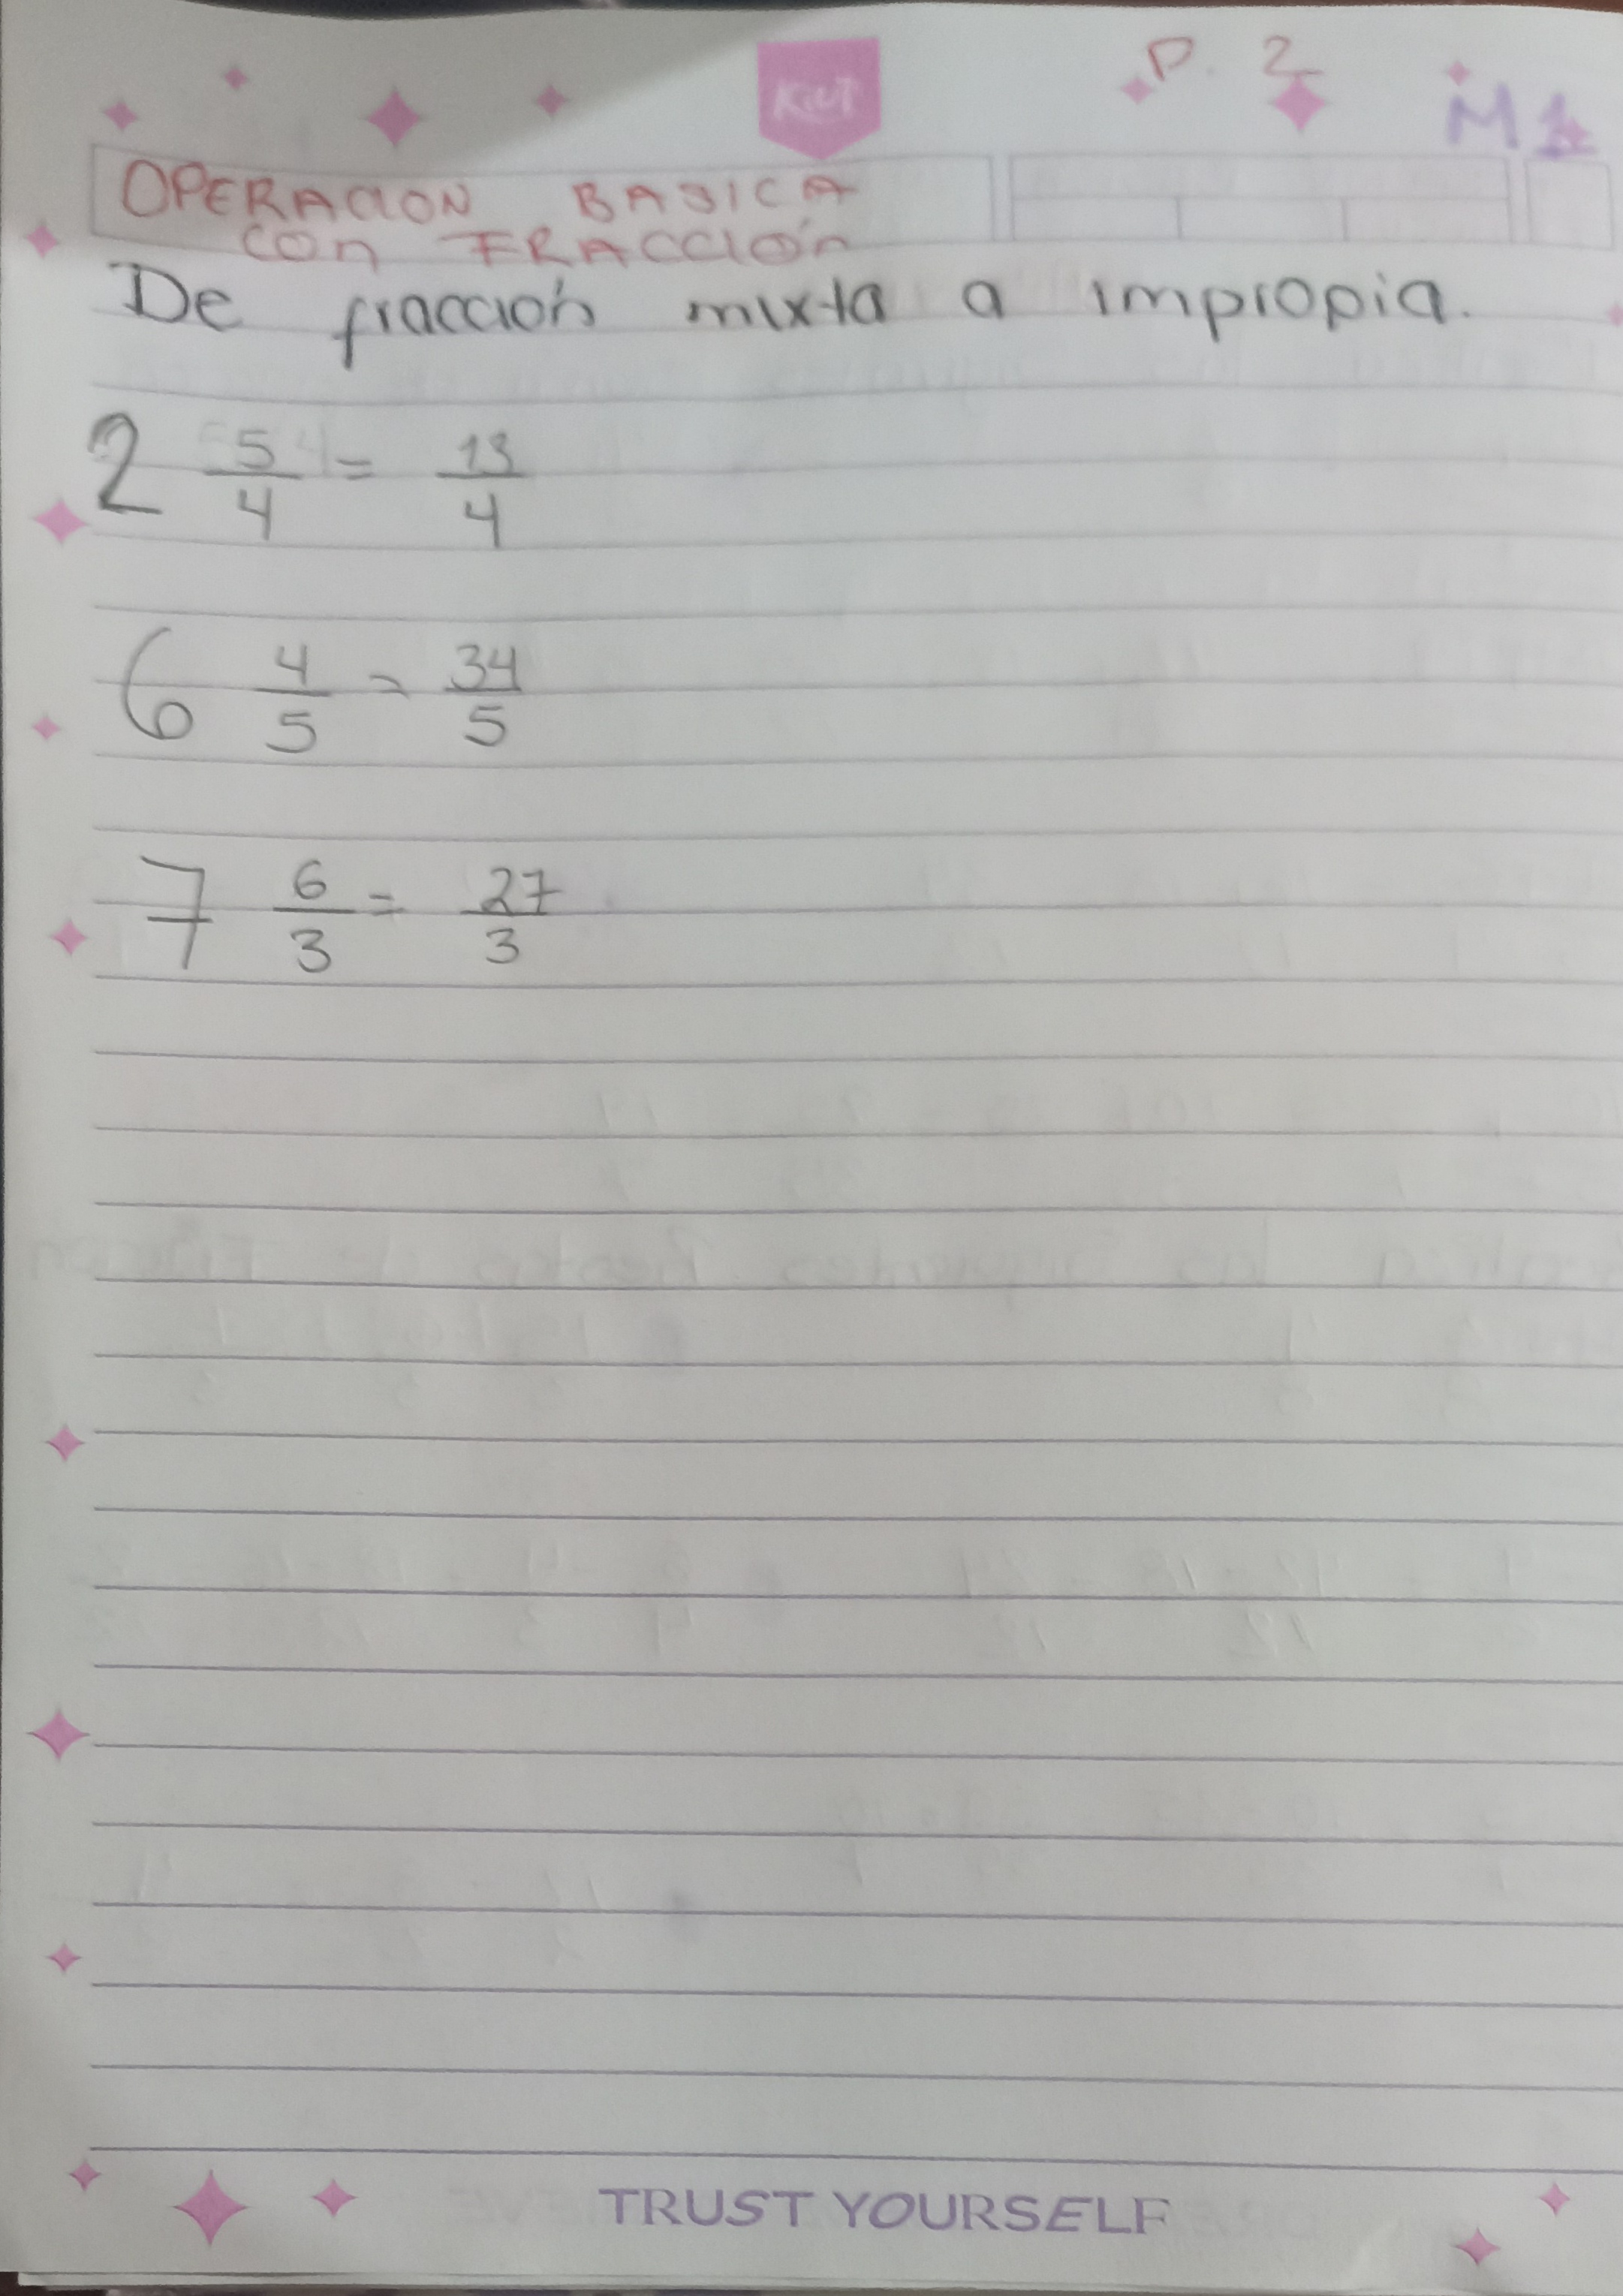 Kiut
P. 2
M 1
OPERACION BASICA
con FRACCIÓN
De fracción mixta a impropia.
2 5/4 = 13/4
6 4/5 = 34/5
7 6/3 = 27/3
TRUST YOURSELF